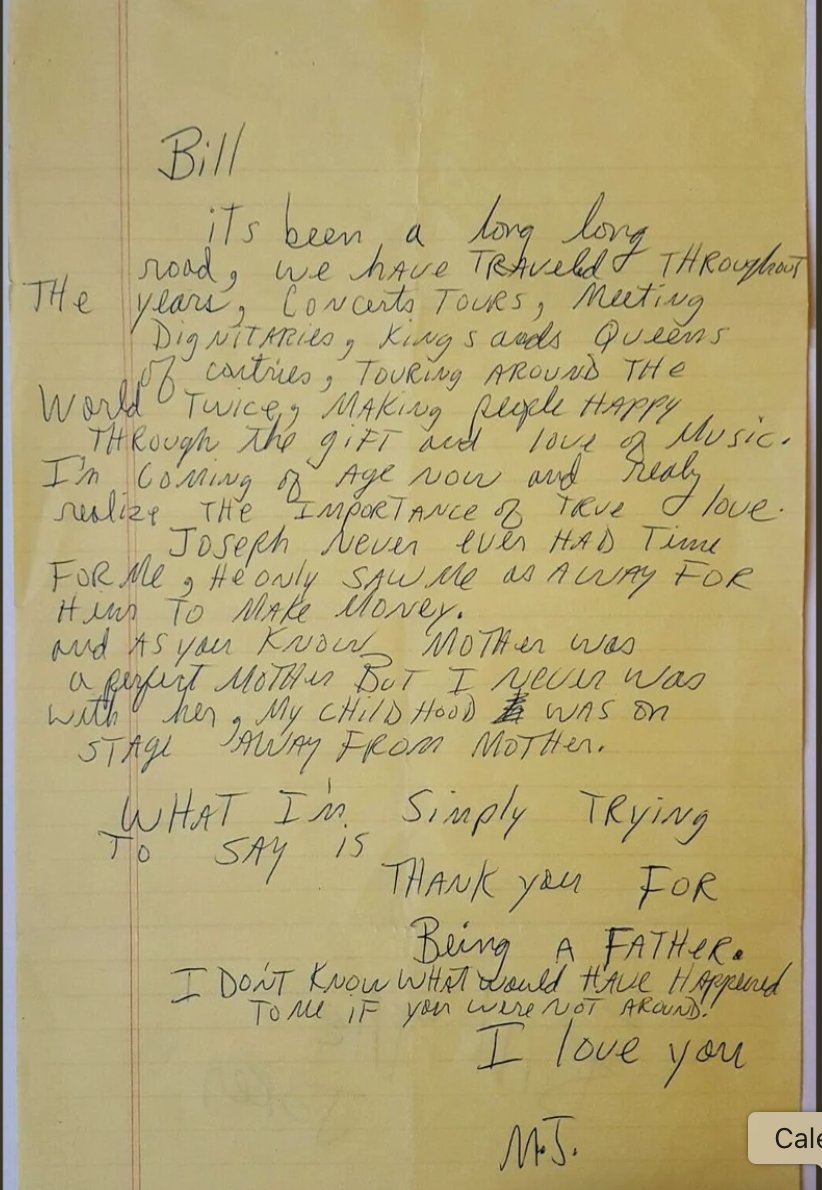 Bill
its been a long long
road, we hAve TRAveled THROughout
THe years, Concerts TOURS, Meeting
DigNITARies, Kings ands Queens
of contries, TOURing AROUND THe
World Twice, MAKing people HAPPY
THROugh the gIFT and love of Music.
I'm Coming of Age now and realy
realize THe IMPORTANCe of TRUe love.
Joseph Never ever HAD Time
FOR Me, He only SAW Me as A WAY FOR
Him TO MAKe Money.
and AS you KNOW MOTHer was
a perfect MOTHer BuT I Never was
with her, My CHILDHOOD WAS on
STAge AWAY FROM MOTHer.
WHAT I'm Simply TRying
TO SAY IS
THANK you FOR
Being A FATHeR.
I DON'T KNOW WHAT would HAVe HAppened
TO Me iF you were NOT AROUND!
I love you
M.J.
Cale